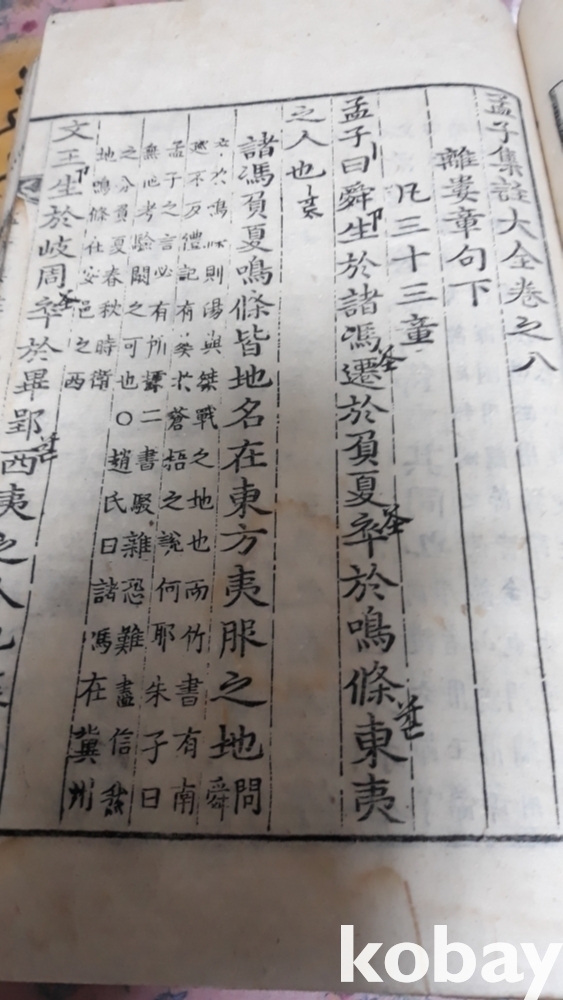 孟子集註大全卷之八
離婁章句下
凡三十三章
孟子曰舜生於諸馮遷於負夏卒於鳴條東夷
之人也
諸馮負夏鳴條皆地名在東方夷服之地問
舜
卒於鳴條則湯與桀戰之地也而竹書有南
巡不反禮記有葬於蒼梧之說何耶朱子曰
孟子之言必有所據二書駁雜恐難盡信然
無他考驗闕之可也○趙氏曰諸馮在冀州
之分負夏春秋時衛
地鳴條在安邑之西
文王生於岐周卒於畢郢西夷之人也
kobay